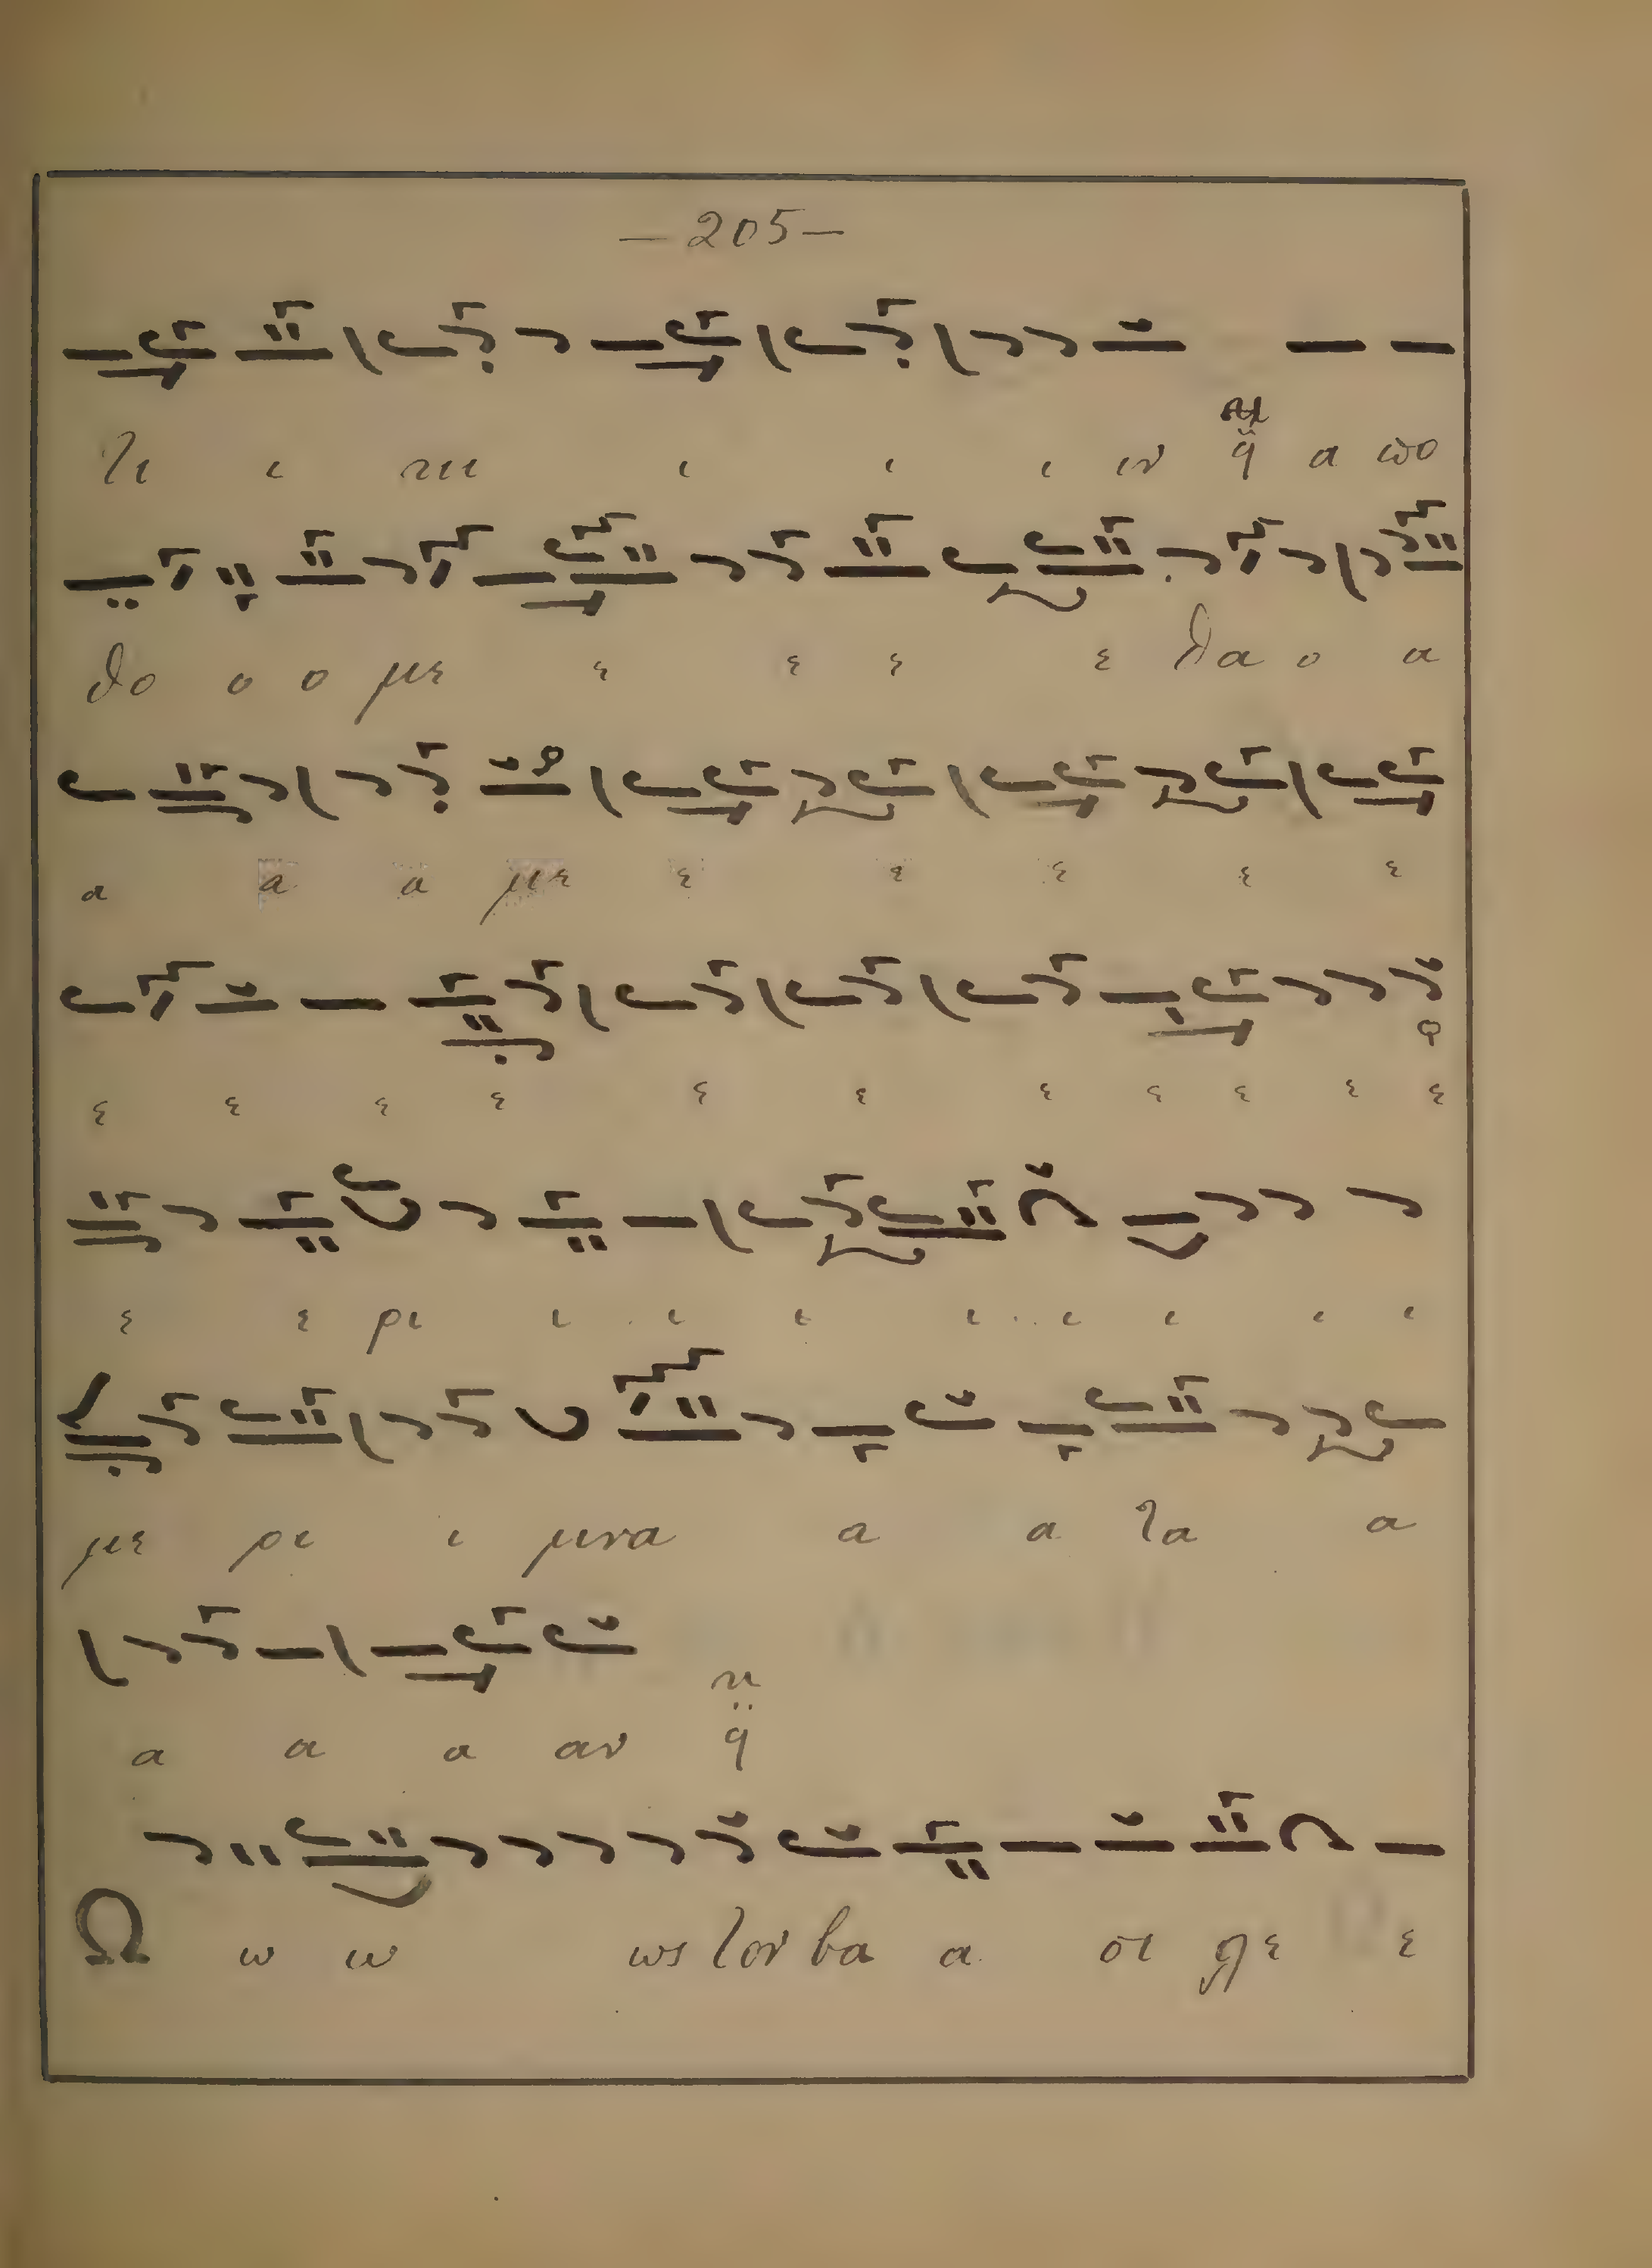 —205—
τι ι κι ι ι ι ιν α πο
θο ο ο με ε ε ε ε θα ο α
α α α με ε ε ε ε ε
ε ε ε ε ε ε ε ε ε ε ε
ε ε ρι ι ι ι ι ι ι ι ι
με ρι ι μνα α α τα α
α α α αν
Ω ω ω ως τον βα α σι λε ε